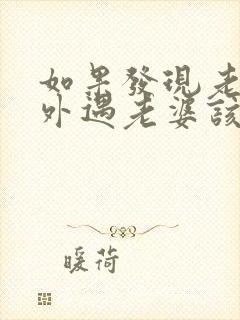 如果發現老
外遇老婆該
暖荷